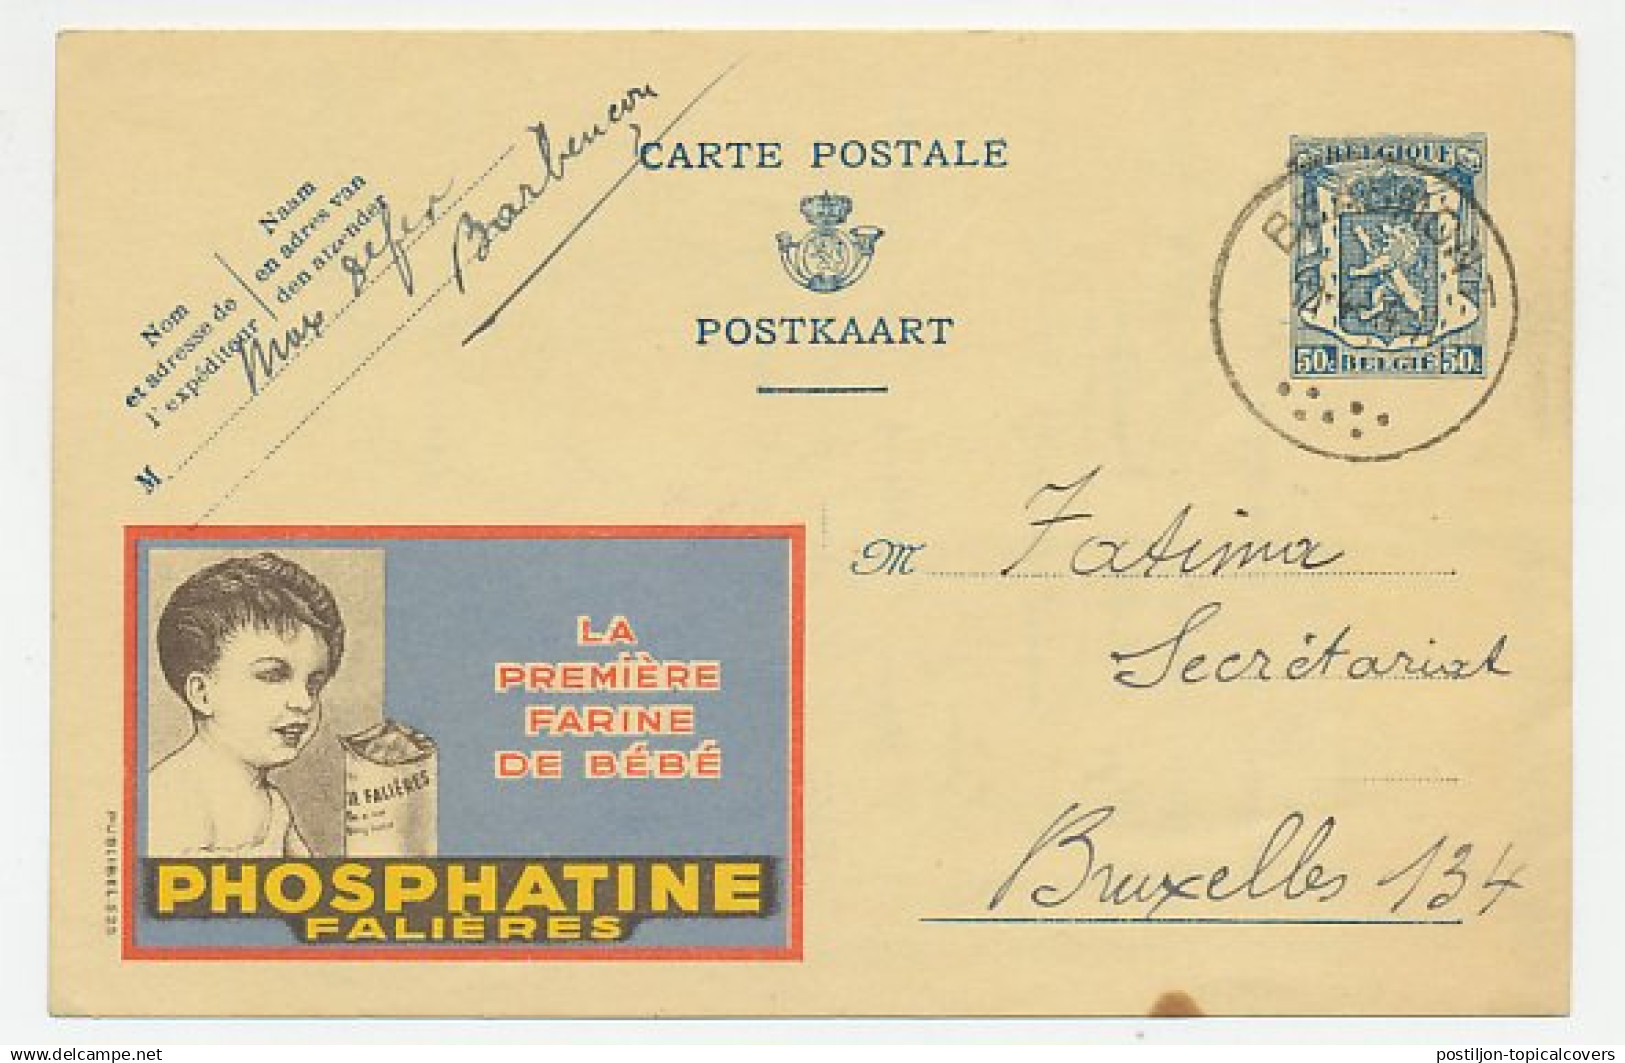 CARTE POSTALE
POSTKAART
Naam
en adres van
den afzender
Nom
et adresse de
l'expéditeur
M
Max
Barbençon
BELGIQUE
50c BELGIË 50c
M Fatima
Secrétariat
Bruxelles 134
LA
PREMIÈRE
FARINE
DE BÉBÉ
FALIÈRES
PHOSPHATINE
FALIÈRES
PUBLIBEL 525
delcampe.net
postiljon-topicalcovers